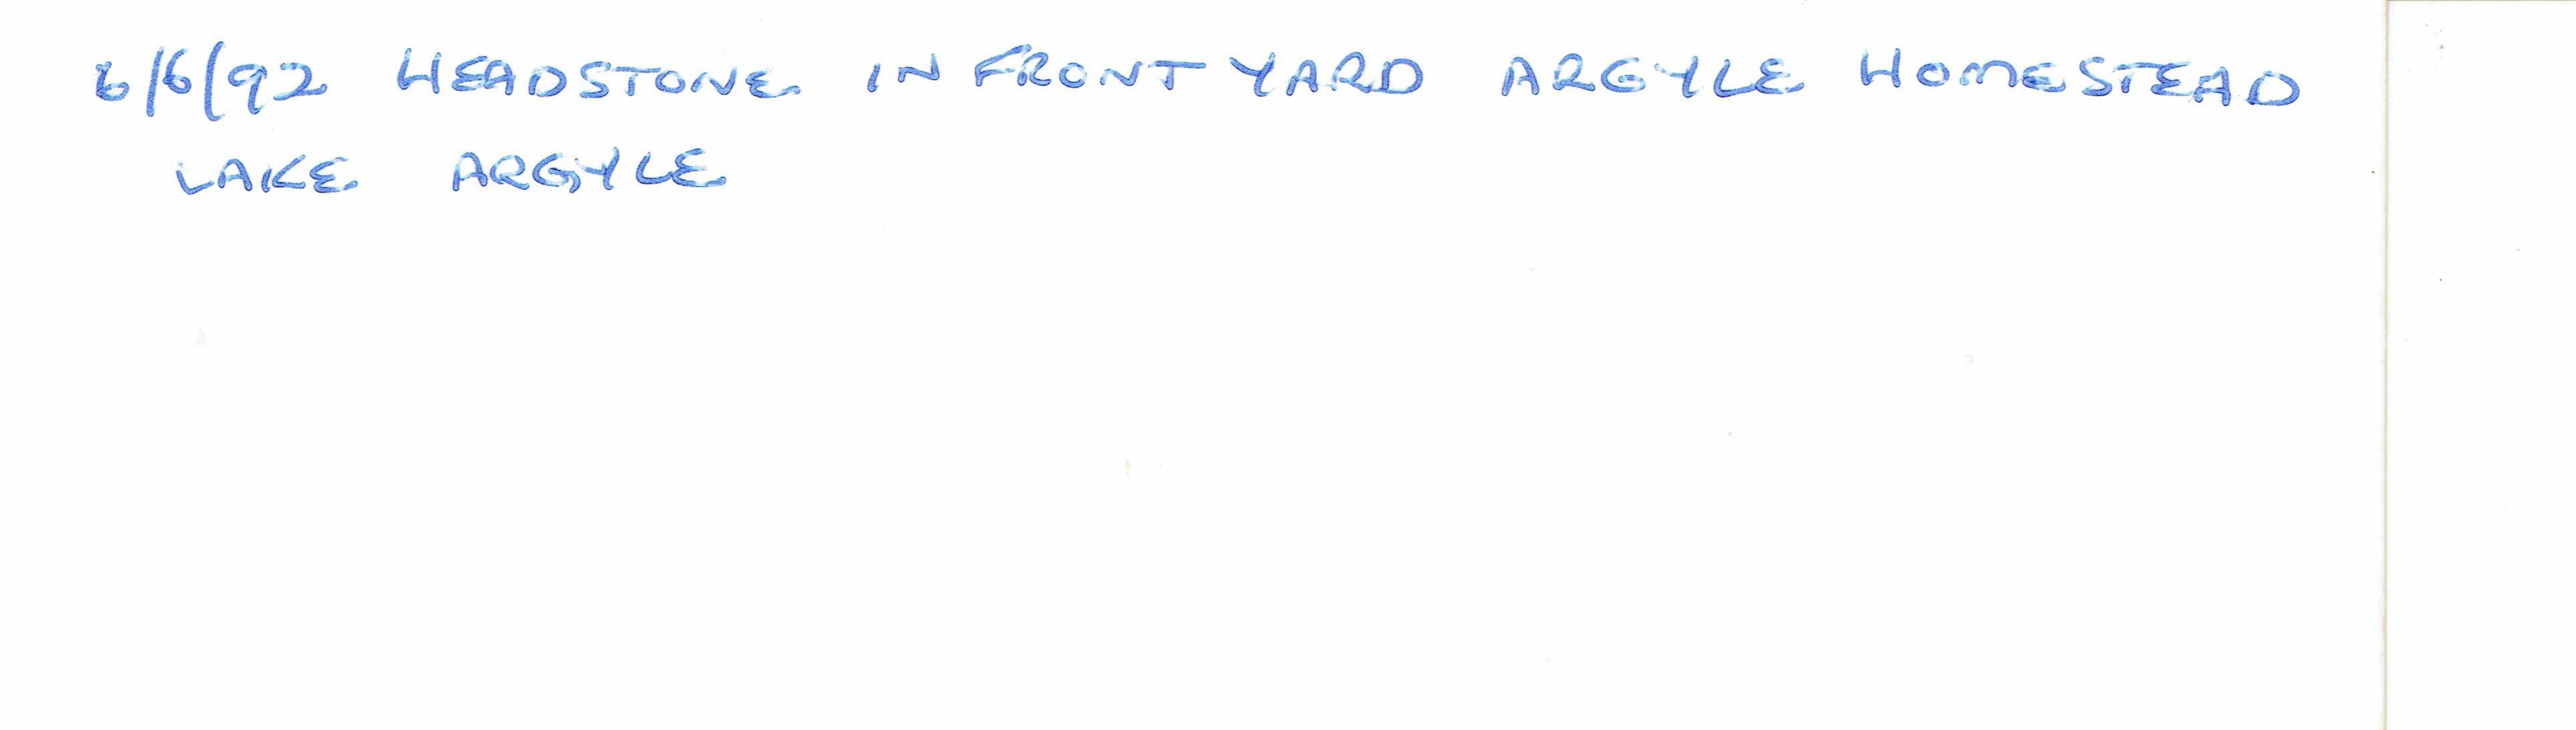 6/6/92 HEADSTONE IN FRONT YARD ARGYLE HOMESTEAD
LAKE ARGYLE